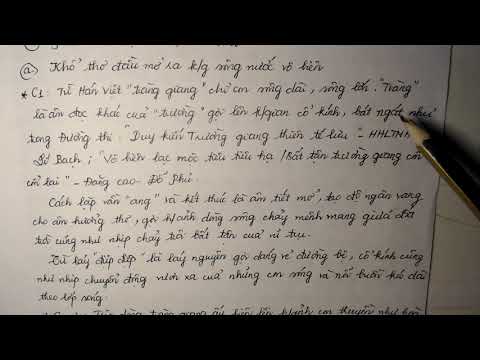 ⓐ Khổ thơ đầu mở ra k/g sông nước vô biên
* C1: Từ Hán Việt "tràng giang" chỉ con sông dài, sông lớn. "Tràng"
là âm đọc khác của "trường" gợi lên k/gian cổ kính, bát ngát như
trong Đường thi: "Duy kiến Trường giang thiên tế lưu" - HHLTNH
Lý Bạch; "Vô biên lạc mộc tiêu tiêu hạ / Bất tận trường giang cổn
cổn lai" - Đăng cao - Đỗ Phủ.
Cách lặp vần "ang" và kết thúc là âm tiết mở, tạo độ ngân vang
cho âm hưởng thơ, gợi h/ảnh dòng sông chảy mênh mang giữa đất
trời cũng như nhịp chảy trôi bất tận của vũ trụ.
Từ láy "điệp điệp" là láy nguyên gợi dáng vẻ đường bệ, cổ kính cũng
như nhịp chuyển động vươn xa của những con sóng và nỗi buồn kéo dài
theo lớp sóng.